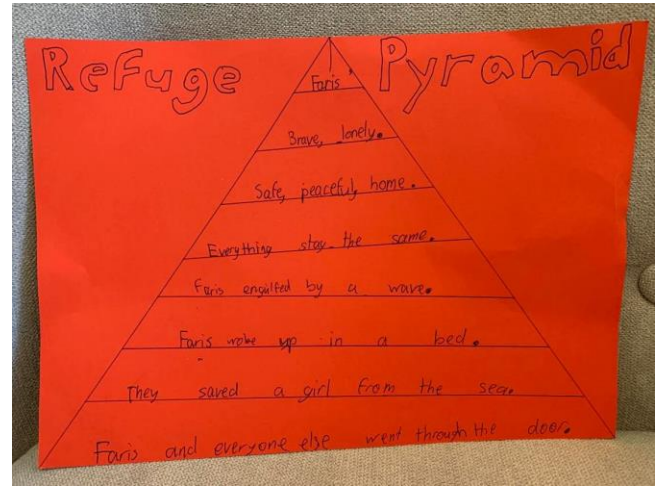 Refuge Pyramid
Faris
Brave, lonely.
Safe, peaceful, home.
Everything stay the same.
Faris engulfed by a wave.
Faris woke up in a bed.
They saved a girl from the sea.
Faris and everyone else went through the door.